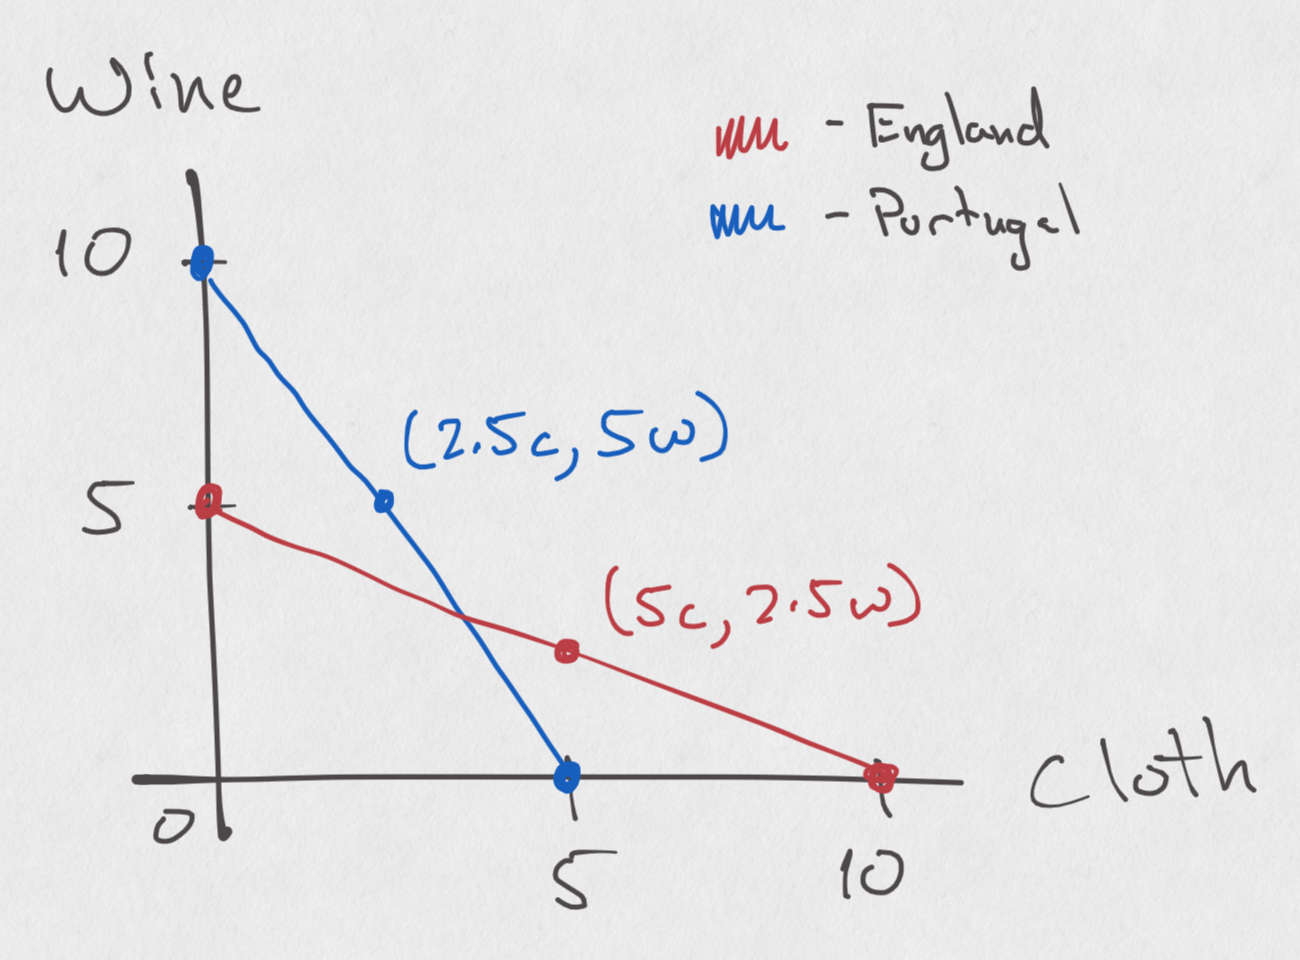 Wine
- England
- Portugal
10
(2.5c, 5w)
5
(5c, 2.5w)
Cloth
0
5
10